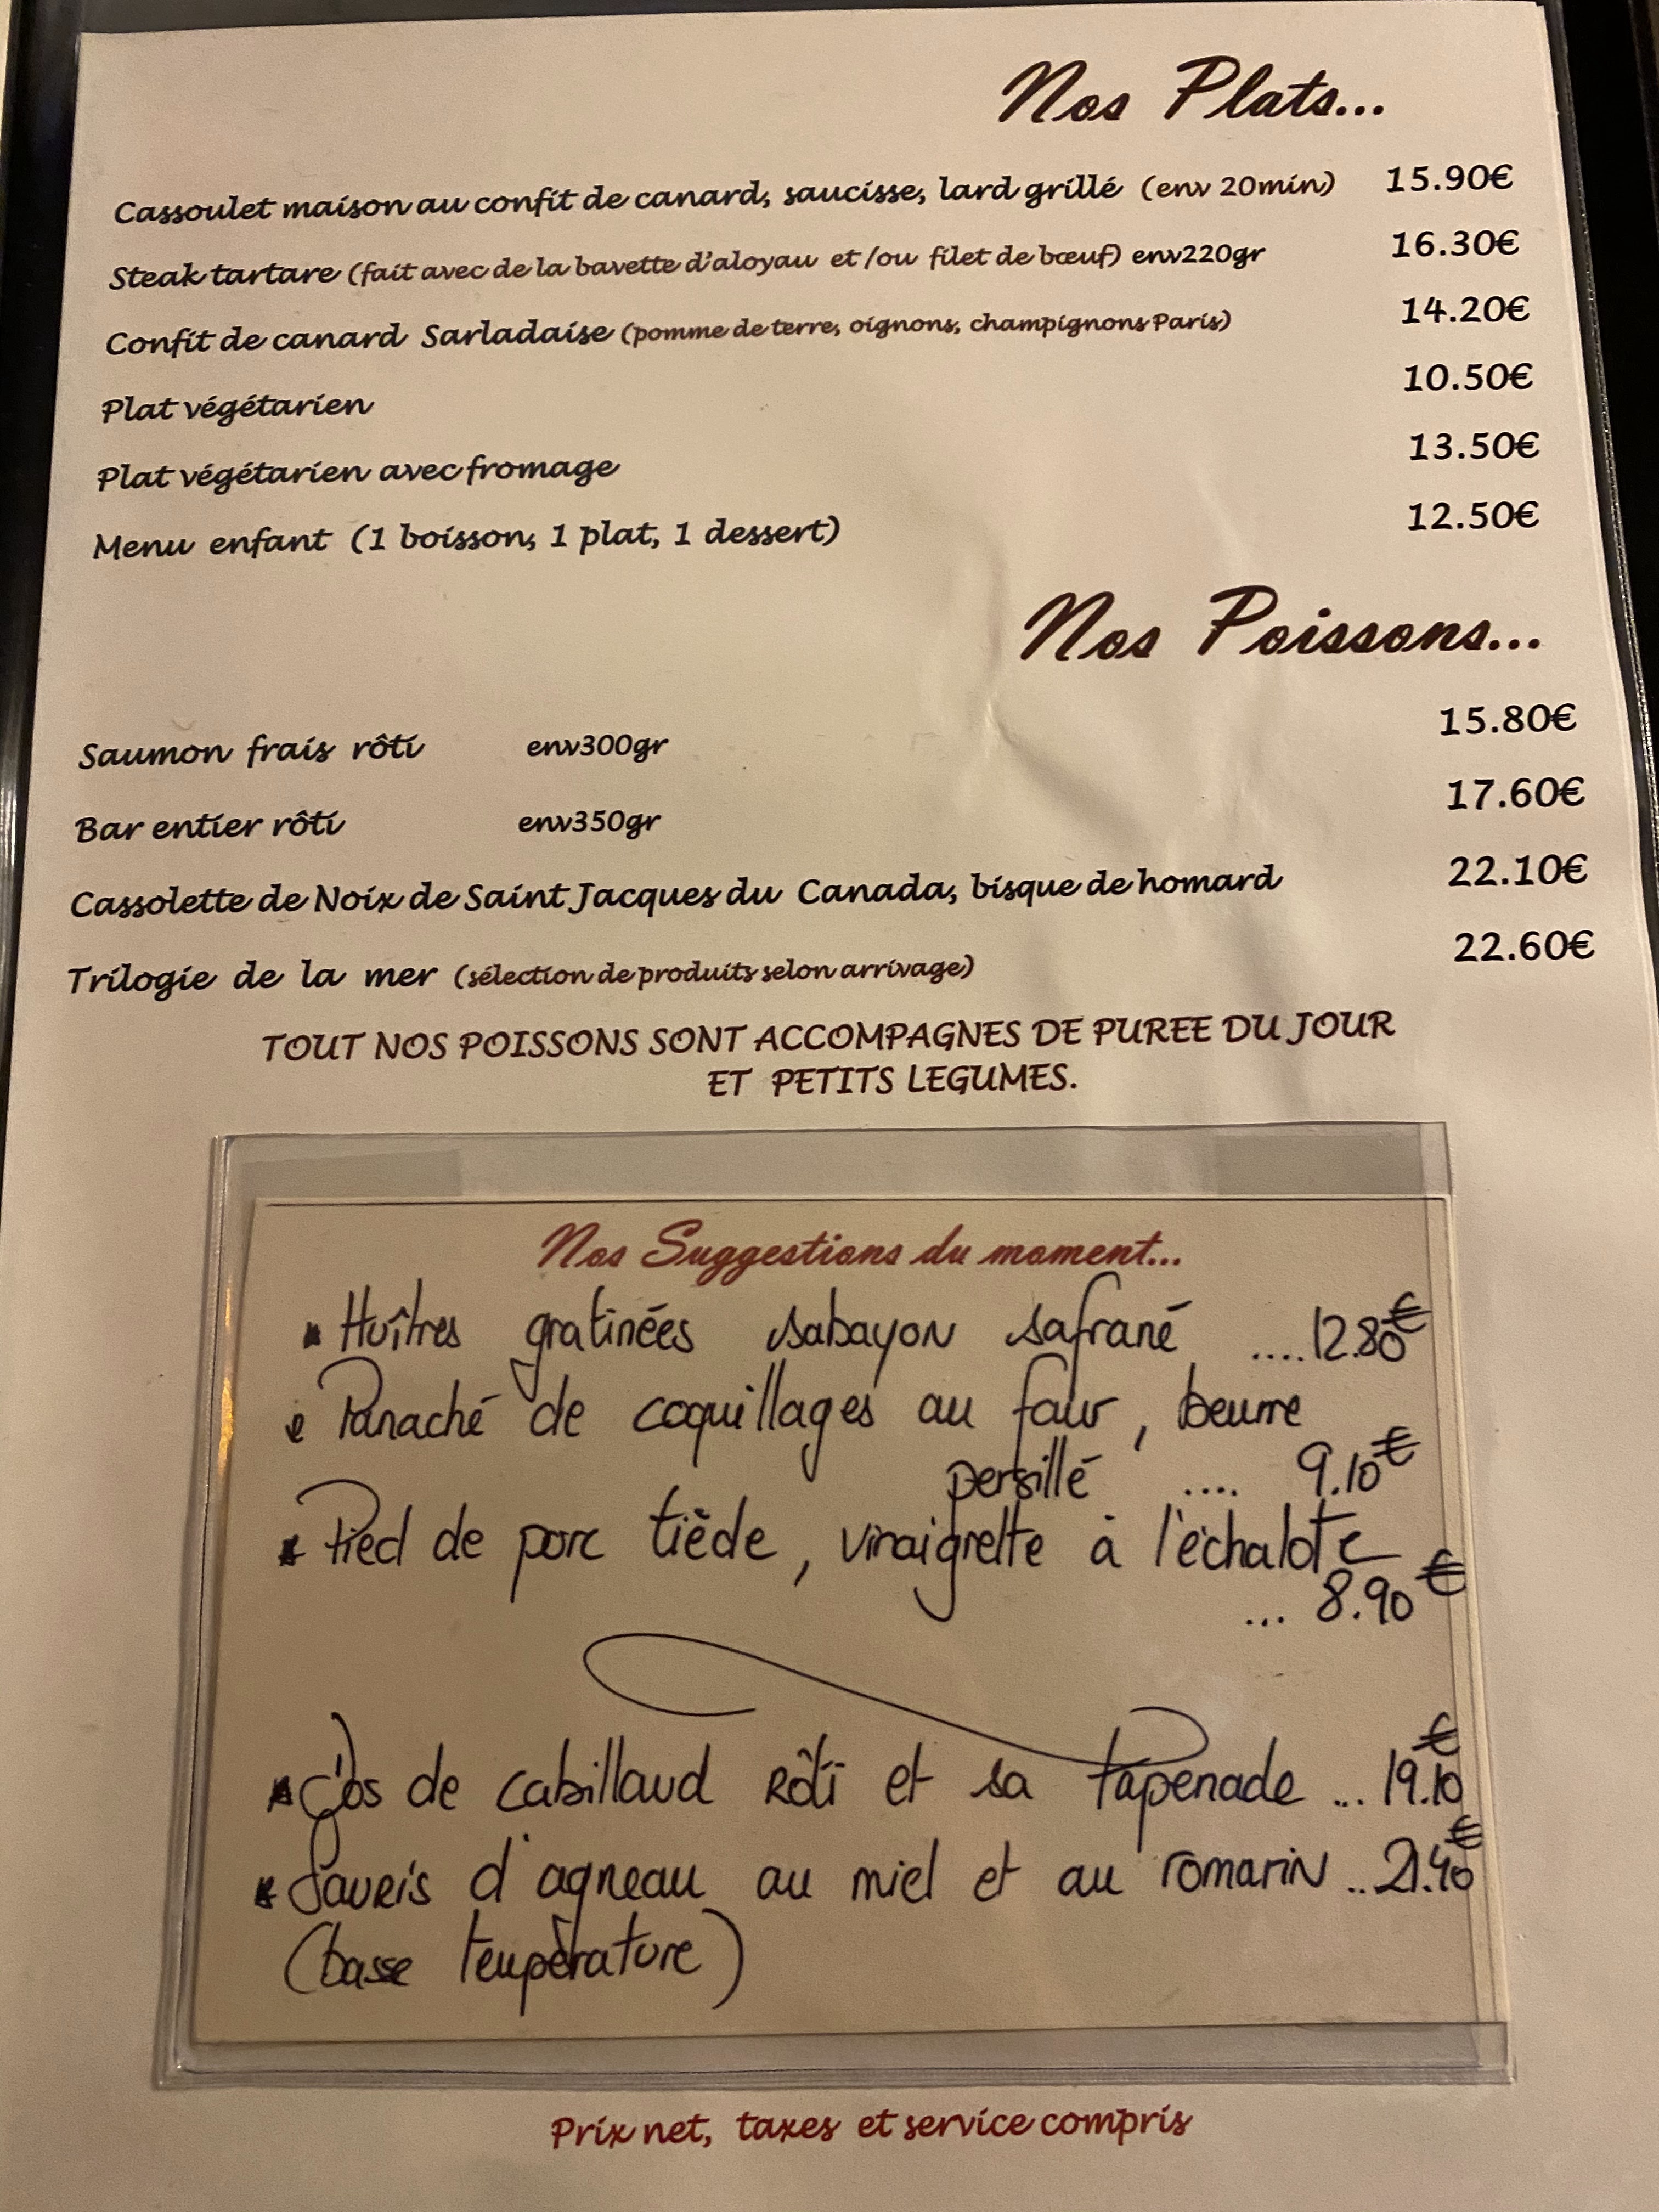 Nos Plats...
Cassoulet maison au confit de canard, saucisse, lard grillé (env 20min) 15.90€
Steak tartare (fait avec de la bavette d'aloyau et /ou filet de bœuf) env220gr 16.30€
Confit de canard Sarladaise (pomme de terre, oignons, champignons Paris) 14.20€
Plat végétarien 10.50€
Plat végétarien avec fromage 13.50€
Menu enfant (1 boisson, 1 plat, 1 dessert) 12.50€
Nos Poissons...
Saumon frais rôti env300gr 15.80€
Bar entier rôti env350gr 17.60€
Cassolette de Noix de Saint Jacques du Canada, bisque de homard 22.10€
Trilogie de la mer (sélection de produits selon arrivage) 22.60€
TOUT NOS POISSONS SONT ACCOMPAGNES DE PUREE DU JOUR
ET PETITS LEGUMES.
Nos Suggestions du moment...
Huîtres gratinées sabayon safrané ....12.80€
Panaché de coquillages au four, beurre
persillé .... 9.10€
Pied de porc tiède, vinaigrette à l'échalote
... 8.90€
Dos de cabillaud rôti et sa tapenade ... 19.10€
Souris d'agneau au miel et au romarin .. 21.40€
(basse température)
Prix net, taxes et service compris